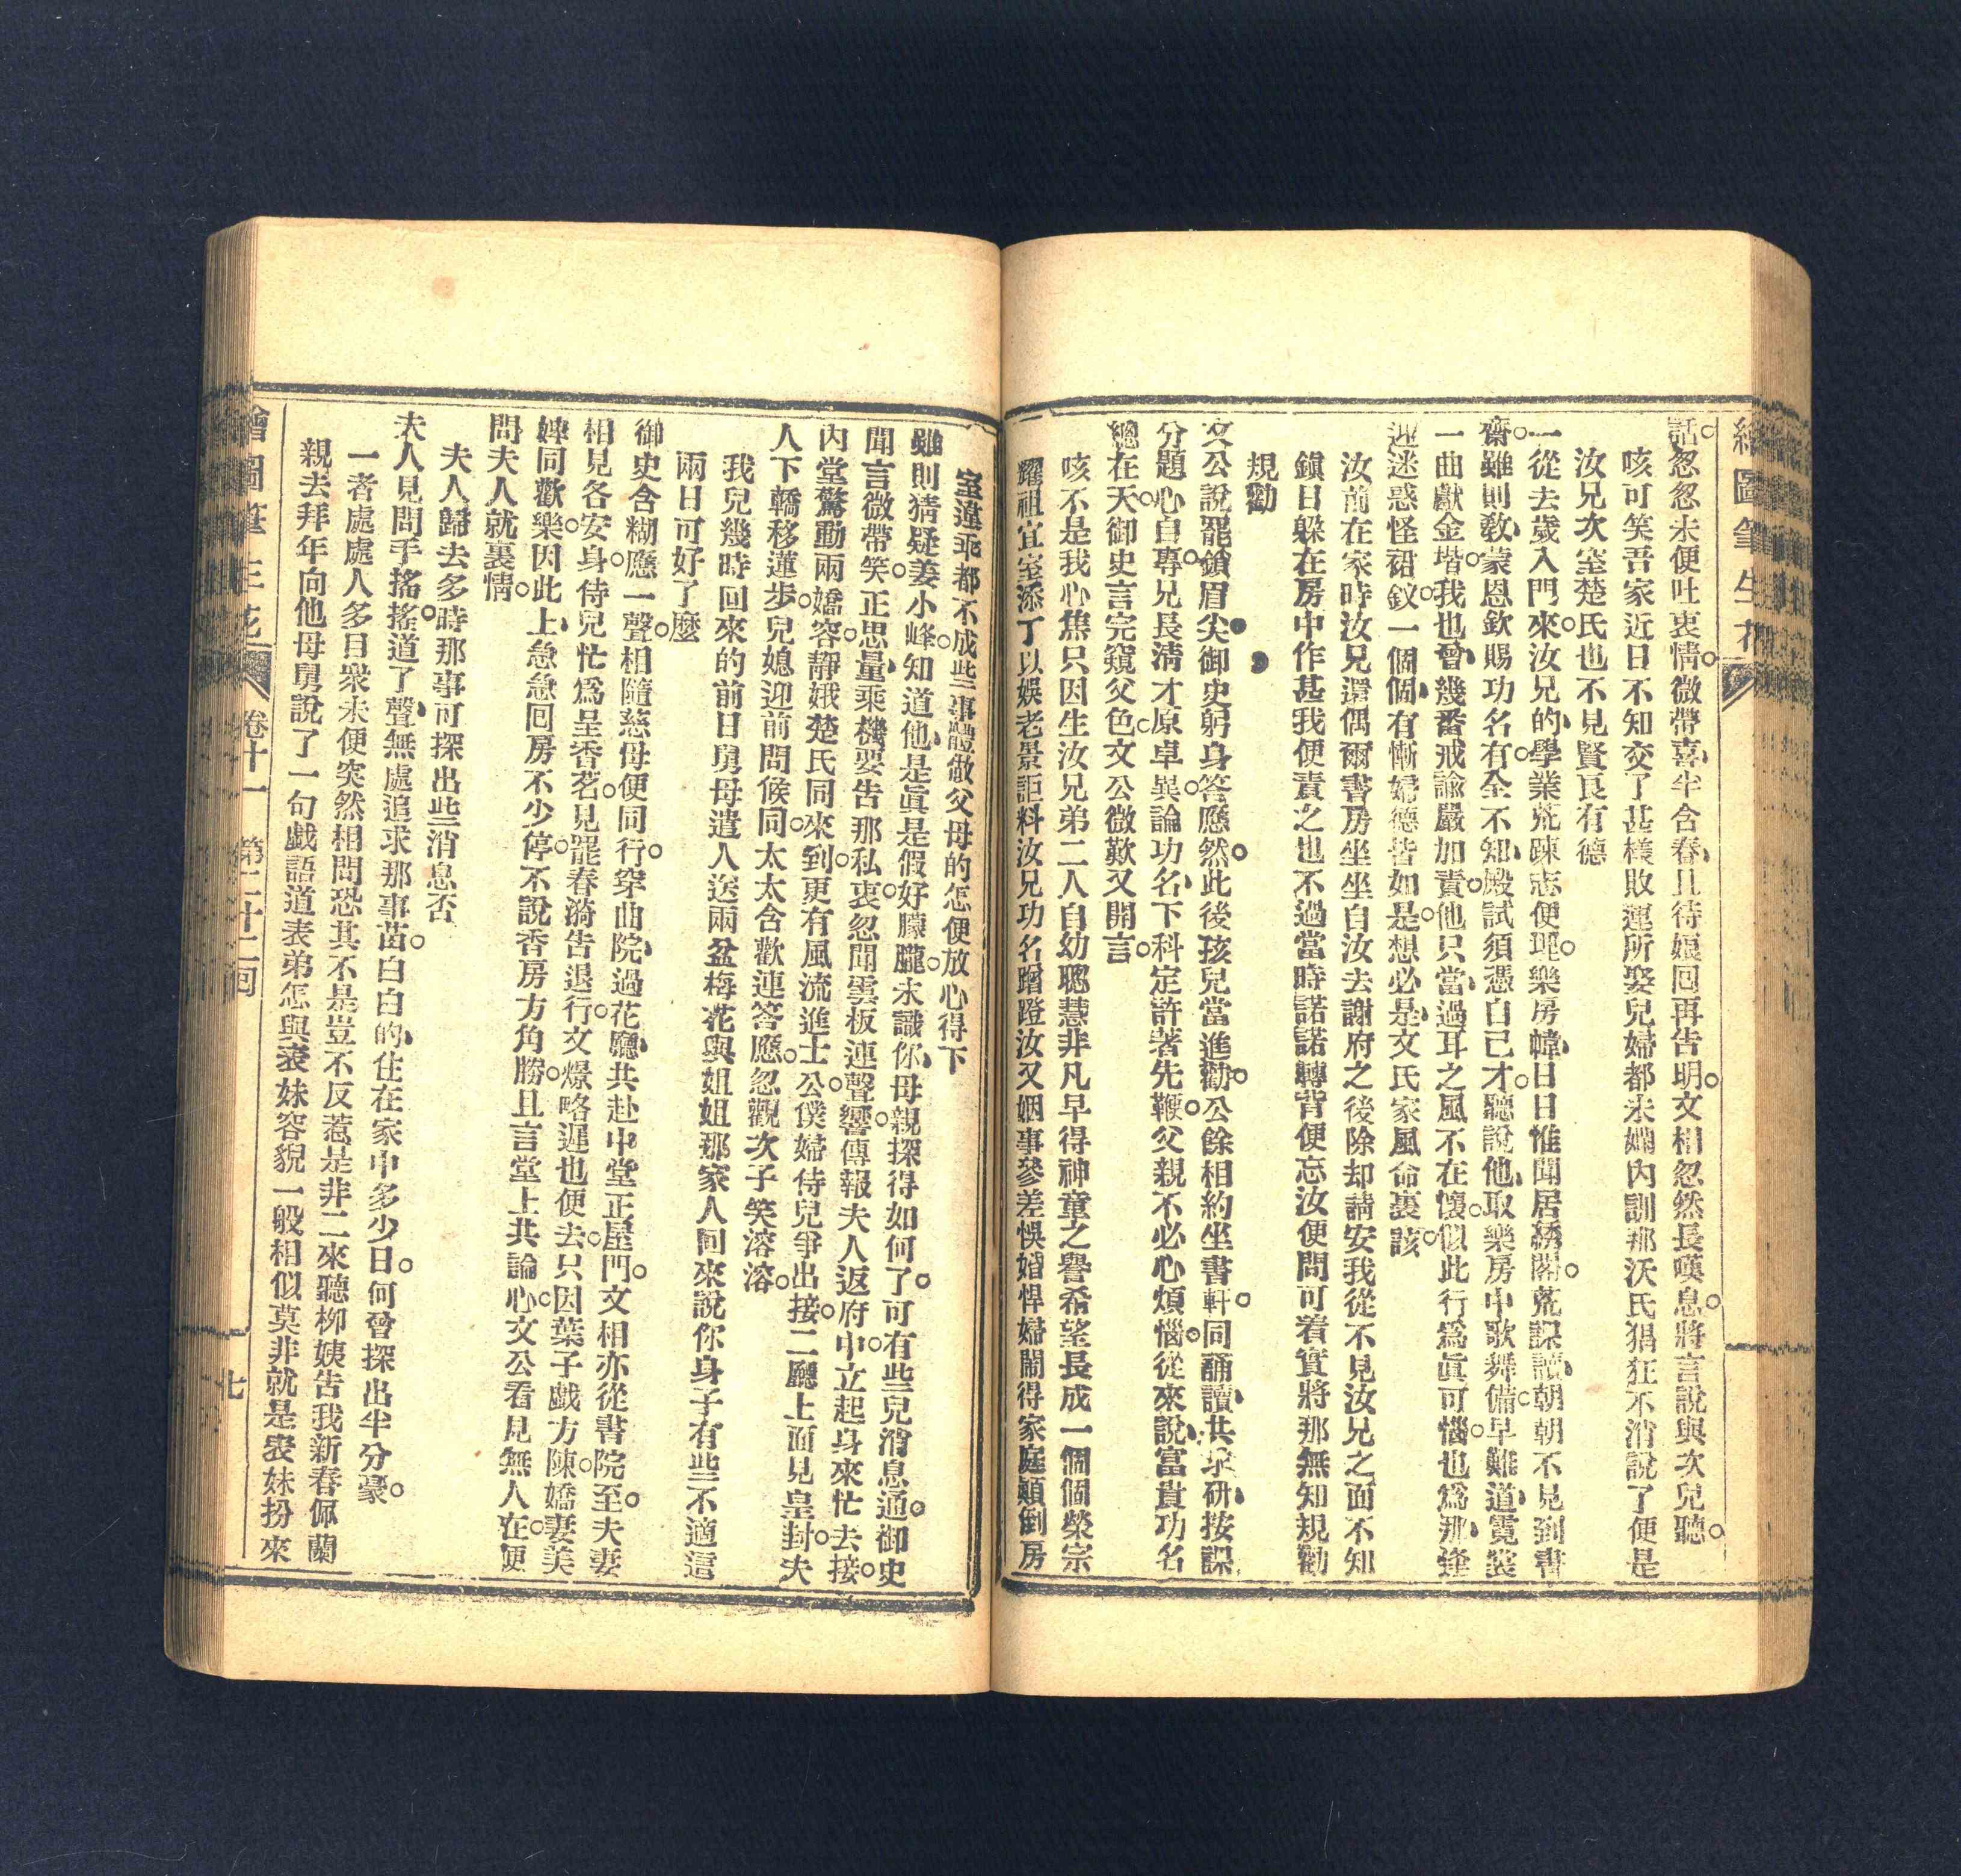 繪圖筆生花
話忽忽未便吐衷情。微帶喜、半含春、且待娘回再告明。文相忽然長嘆息。將言說與次兒聽。
咳可笑吾家近日不知交了甚樣敗運所娶兒婦都未嫺內訓那沃氏猖狂不消說了便是
汝兄次室楚氏也不見賢良有德
一從去歲入門來。汝兄的、學業荒疎志便瑰。樂房幃、日日惟聞居繡閣。荒課讀、朝朝不見到書
齋。雖則教、蒙恩欽賜功名有。全不知、殿試須憑自己才。聽說他、取樂房中歌舞備。早難道、霓裳
一曲獻金堦。我也曾、幾番戒諭嚴加責。他只當、過耳之風不在懷。似此行爲眞可惱。也爲那、逢
迎迷惑怪裙釵。一個個、有慚婦德皆如是。想必是、文氏家風命裏該。
汝前在家時汝兄還偶爾書房坐坐自汝去謝府之後除却請安我從不見汝兄之面不知
鎮日躱在房中作甚我便責之也不過當時諾諾轉背便忘汝便問可着實將那無知規勸
規勸
文公說罷鎖眉尖御史躬身答應然。此後孩兒當進勸。公餘相約坐書軒。同誦讀、共求研、按課
分題心自專。兄長清才原卓異。論功名、下科定許著先鞭。父親不必心煩惱。從來說、富貴功名
總在天。御史言完窺父色。文公微歎又開言。
咳不是我心焦只因生汝兄弟二人自幼聰慧非凡早得神童之譽希望長成一個個榮宗
耀祖宜室添丁以娛老景詎料汝兄功名蹭蹬汝又姻事參差悞婚悍婦鬧得家庭顚倒房
室違乖都不成些事體做父母的怎便放心得下
雖則猜疑姜小峰。知道他、是眞是假好朦朧。未識你、母親探得如何了。可有些兒消息通。御史
聞言微帶笑。正思量、乘機要告那私衷。忽聞雲板連聲響。傳報夫人返府中。立起身來忙去接。
內堂驚動兩嬌容。靜娥楚氏同來到。更有風流進士公。僕婦侍兒爭出接。二廳上面見皇封。夫
人下轎移蓮步。兒媳迎前問候同。太太含歡連答應。忽觀次子笑溶溶。
我兒幾時回來的前日舅母遣人送兩盆梅花與姐姐那家人回來說你身子有些不適這
兩日可好了麼
御史含糊應一聲。相隨慈母便同行。穿曲院、過花廳、共赴中堂正屋門。文相亦從書院至。夫妻
相見各安身。侍兒忙爲呈香茗。見罷春漪告退行。文憬略遲也便去。只因葉子戲方陳。嬌妻美
婢同歡樂。因此上、急急回房不少停。不說香房方角勝。且言堂上共論心。文公看見無人在。便
問夫人就裏情。
夫人歸去多時那事可探出些消息否
夫人見問手搖搖。道了聲、無處追求那事苗。白白的、住在家中多少日。何曾探出半分豪。
一者處處人多目衆未便突然相問恐其不是豈不反惹是非二來聽柳姨告我新春佩蘭
親去拜年向他母舅說了一句戲語道表弟怎與表妹容貌一般相似莫非就是表妹扮來
繪圖筆生花 卷十一 第二十二回 七